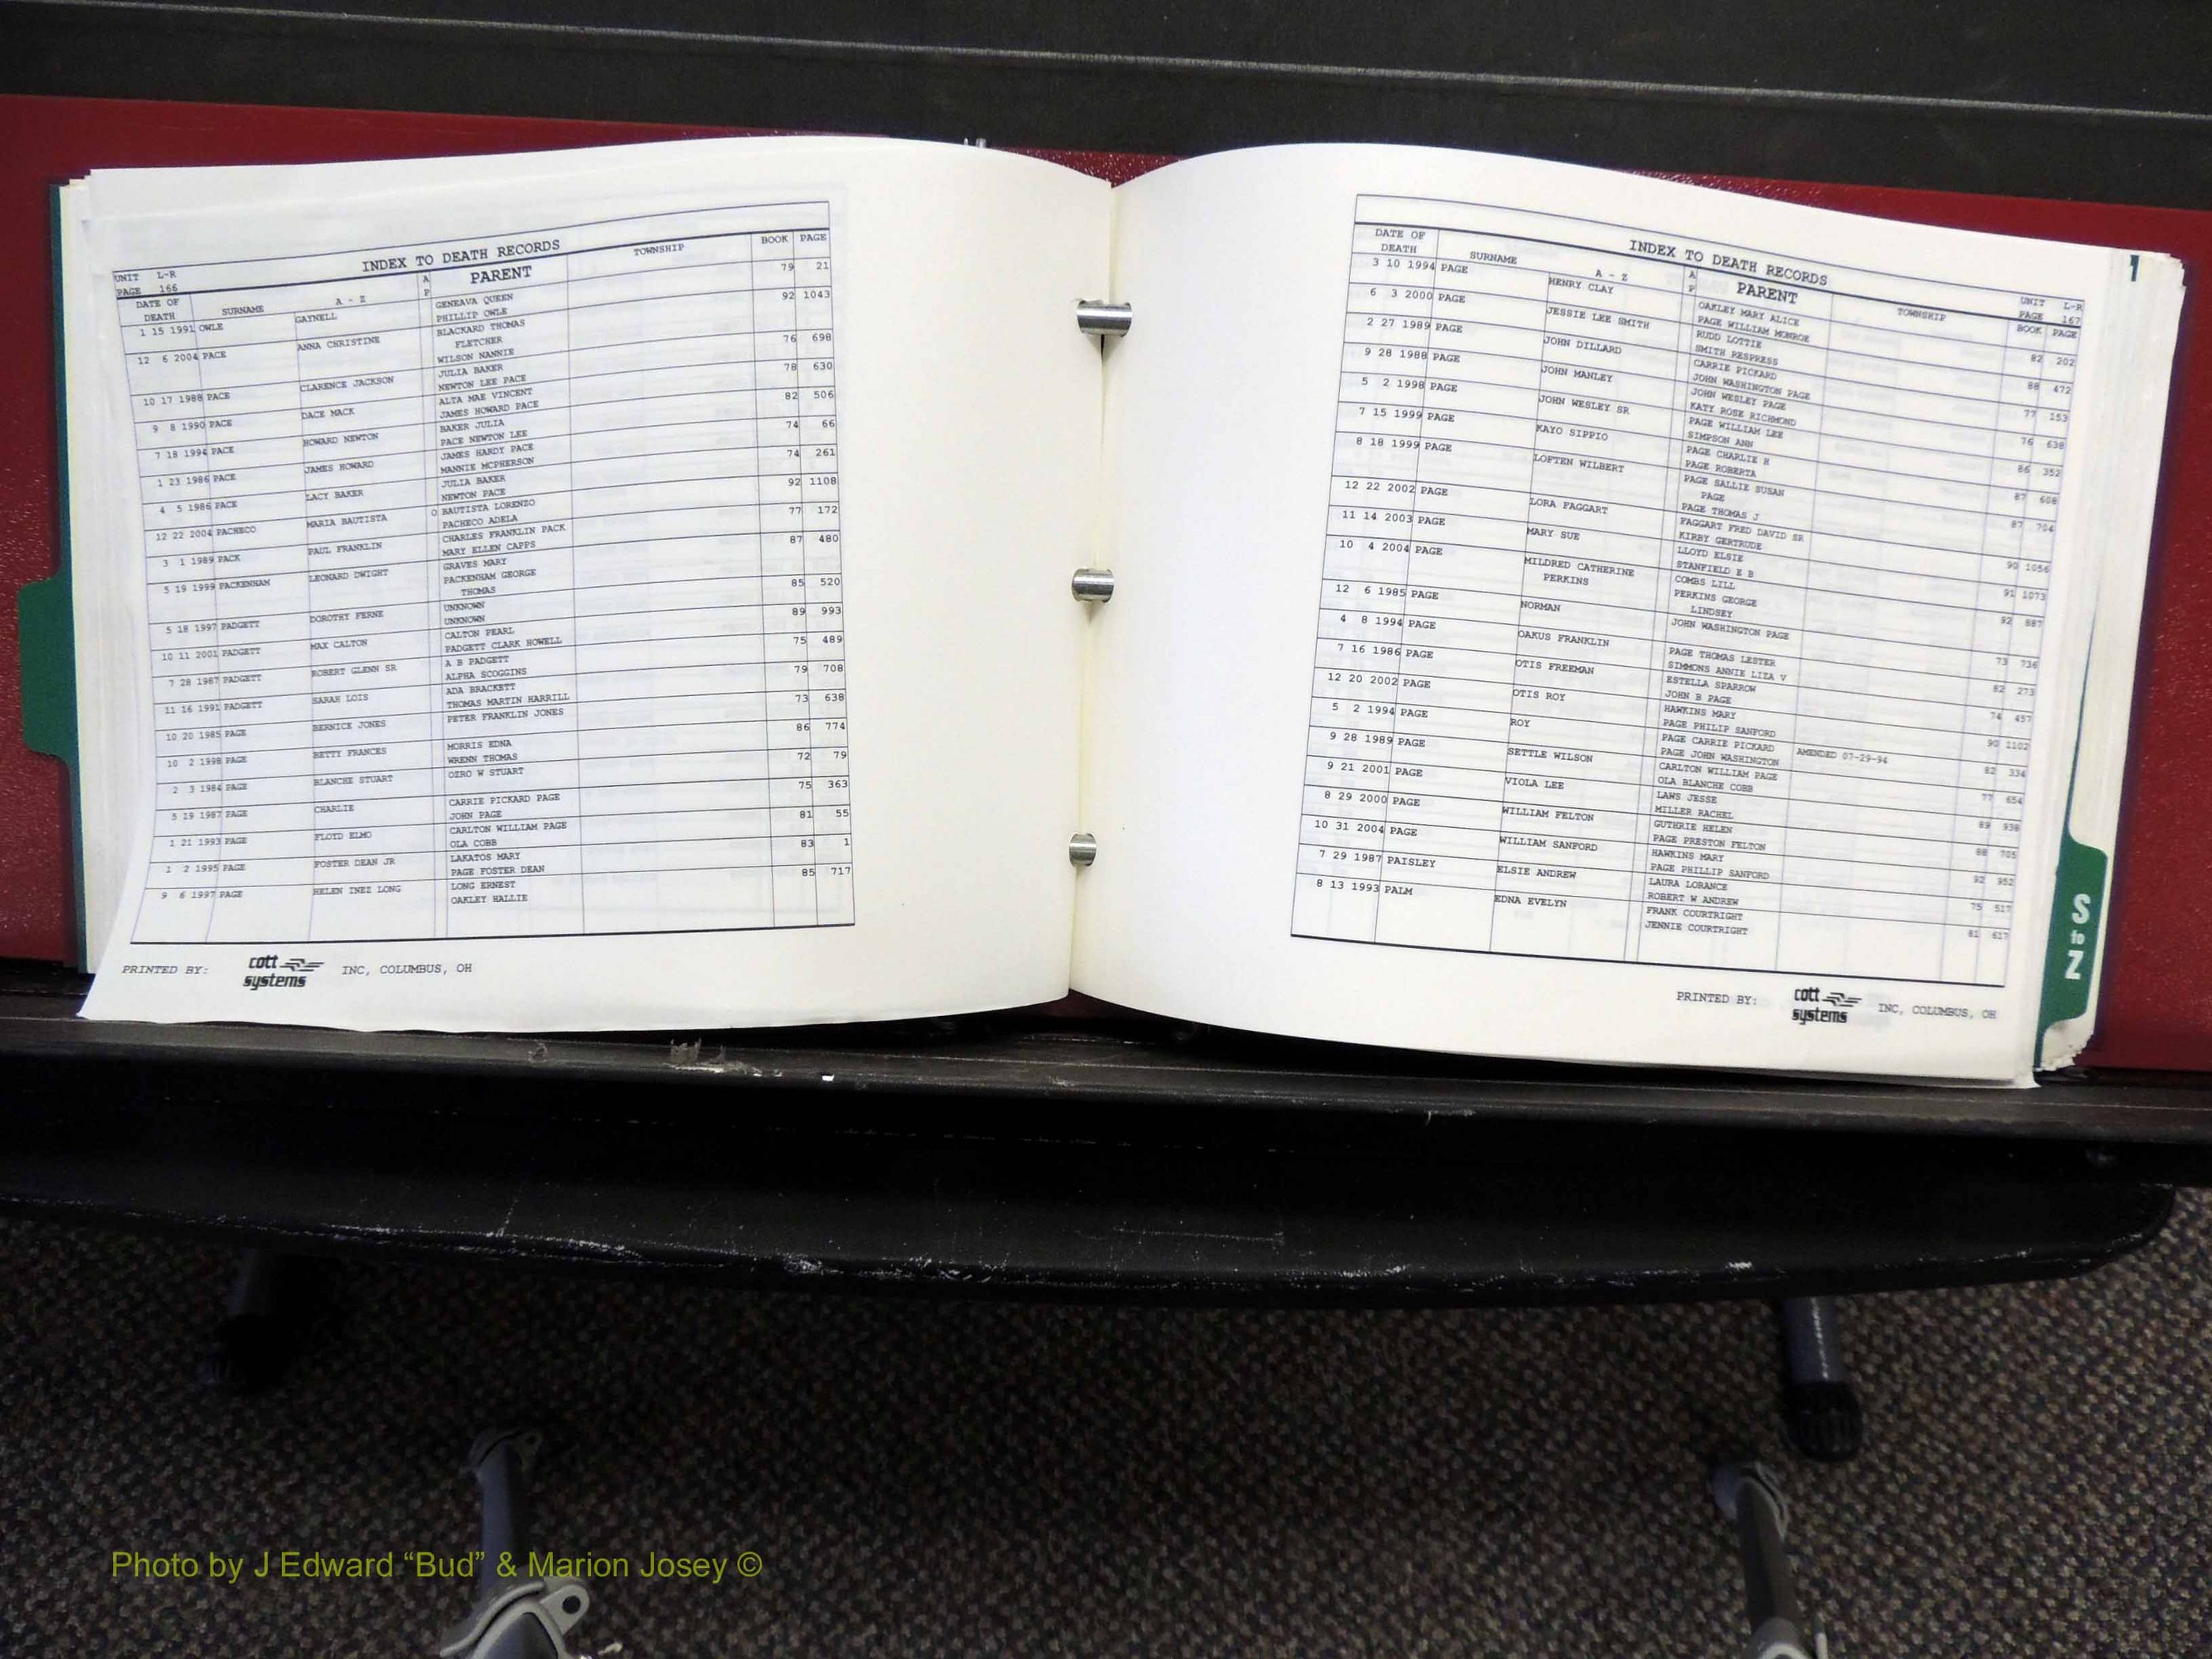 INDEX TO DEATH RECORDS
UNIT L-R
PAGE 166
DATE OF DEATH SURNAME A - Z A P PARENT TOWNSHIP BOOK PAGE
1 15 1991 OWLE GAYNELL GENEAVA QUEEN 79 21
PHILLIP OWLE
12 6 2004 PACE ANNA CHRISTINE BLACKARD THOMAS 92 1043
FLETCHER
WILSON NANNIE
10 17 1988 PACE CLARENCE JACKSON JULIA BAKER 76 698
NEWTON LEE PACE
9 8 1990 PACE DACE MACK ALTA MAE VINCENT 78 630
JAMES HOWARD PACE
7 18 1994 PACE HOWARD NEWTON BAKER JULIA 82 506
PACE NEWTON LEE
1 23 1986 PACE JAMES HOWARD JAMES HARDY PACE 74 66
MANNIE MCPHERSON
4 5 1986 PACE LACY BAKER JULIA BAKER 74 261
NEWTON PACE
12 22 2004 PACHECO MARIA BAUTISTA O BAUTISTA LORENZO 92 1108
PACHECO ADELA
3 1 1989 PACK PAUL FRANKLIN CHARLES FRANKLIN PACK 77 172
MARY ELLEN CAPPS
5 19 1999 PACKENHAM LEONARD DWIGHT GRAVES MARY 87 480
PACKENHAM GEORGE
THOMAS
5 18 1997 PADGETT DOROTHY FERNE UNKNOWN 85 520
UNKNOWN
10 11 2001 PADGETT MAX CALTON CALTON PEARL 89 993
PADGETT CLARK HOWELL
7 28 1987 PADGETT ROBERT GLENN SR A B PADGETT 75 489
ALPHA SCOGGINS
11 16 1991 PADGETT SARAH LOIS ADA BRACKETT 79 708
THOMAS MARTIN HARRILL
10 20 1985 PAGE BERNICE JONES PETER FRANKLIN JONES 73 638
10 2 1998 PAGE BETTY FRANCES MORRIS EDNA 86 774
WRENN THOMAS
2 3 1984 PAGE BLANCHE STUART OZRO W STUART 72 79
5 19 1987 PAGE CHARLIE CARRIE PICKARD PAGE 75 363
JOHN PAGE
1 21 1993 PAGE FLOYD ELMO CARLTON WILLIAM PAGE 81 55
OLA COBB
1 2 1995 PAGE FOSTER DEAN JR LAKATOS MARY 83 1
PAGE FOSTER DEAN
9 6 1997 PAGE HELEN INEZ LONG LONG ERNEST 85 717
OAKLEY HALLIE
PRINTED BY: cott systems INC, COLUMBUS, OH
INDEX TO DEATH RECORDS
UNIT L-R
PAGE 167
DATE OF DEATH SURNAME A - Z A P PARENT TOWNSHIP BOOK PAGE
3 10 1994 PAGE HENRY CLAY OAKLEY MARY ALICE 82 202
PAGE WILLIAM MONROE
6 3 2000 PAGE JESSIE LEE SMITH RUDD LOTTIE 88 472
SMITH RESPRESS
2 27 1989 PAGE JOHN DILLARD CARRIE PICKARD 77 153
JOHN WASHINGTON PAGE
9 28 1988 PAGE JOHN MANLEY JOHN WESLEY PAGE 76 638
KATY ROSE RICHMOND
5 2 1998 PAGE JOHN WESLEY SR PAGE WILLIAM LEE 86 352
SIMPSON ANN
7 15 1999 PAGE KAYO SIPPIO PAGE CHARLIE H 87 608
PAGE ROBERTA
8 18 1999 PAGE LOFTEN WILBERT PAGE SALLIE SUSAN 87 704
PAGE
PAGE THOMAS J
12 22 2002 PAGE LORA FAGGART FAGGART FRED DAVID SR 90 1056
KIRBY GERTRUDE
11 14 2003 PAGE MARY SUE LLOYD ELSIE 91 1073
STANFIELD E B
10 4 2004 PAGE MILDRED CATHERINE COMBS LILL 92 887
PERKINS PERKINS GEORGE
LINDSEY
12 6 1985 PAGE NORMAN JOHN WASHINGTON PAGE 73 736
4 8 1994 PAGE OAKUS FRANKLIN PAGE THOMAS LESTER 82 273
SIMMONS ANNIE LIZA V
7 16 1986 PAGE OTIS FREEMAN ESTELLA SPARROW 74 457
JOHN B PAGE
12 20 2002 PAGE OTIS ROY HAWKINS MARY 90 1102
PAGE PHILIP SANFORD
5 2 1994 PAGE ROY PAGE CARRIE PICKARD AMENDED 07-29-94 82 334
PAGE JOHN WASHINGTON
9 28 1989 PAGE SETTLE WILSON CARLTON WILLIAM PAGE 77 654
OLA BLANCHE COBB
9 21 2001 PAGE VIOLA LEE LAWS JESSE 89 938
MILLER RACHEL
8 29 2000 PAGE WILLIAM FELTON GUTHRIE HELEN 88 705
PAGE PRESTON FELTON
10 31 2004 PAGE WILLIAM SANFORD HAWKINS MARY 92 952
PAGE PHILLIP SANFORD
7 29 1987 PAISLEY ELSIE ANDREW LAURA LORANCE 75 517
ROBERT W ANDREW
8 13 1993 PALM EDNA EVELYN FRANK COURTRIGHT 81 617
JENNIE COURTRIGHT
PRINTED BY: cott systems INC, COLUMBUS, OH
S to Z
Photo by J Edward “Bud” & Marion Josey ©